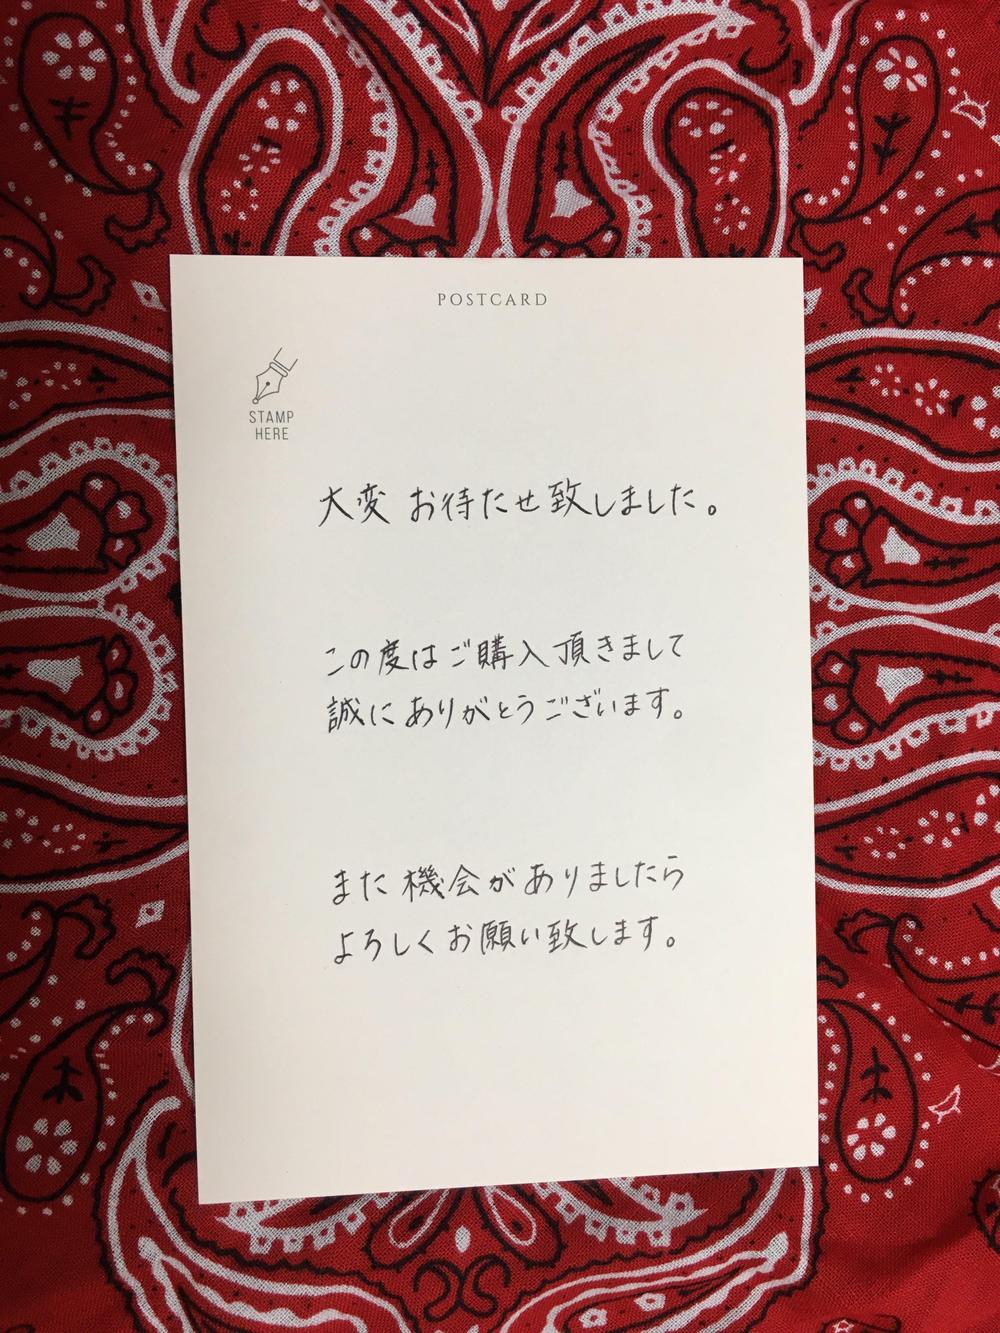 POSTCARD
STAMP
HERE
大変 お待たせ致しました。
この度はご購入頂きまして
誠にありがとうございます。
また機会がありましたら
よろしくお願い致します。